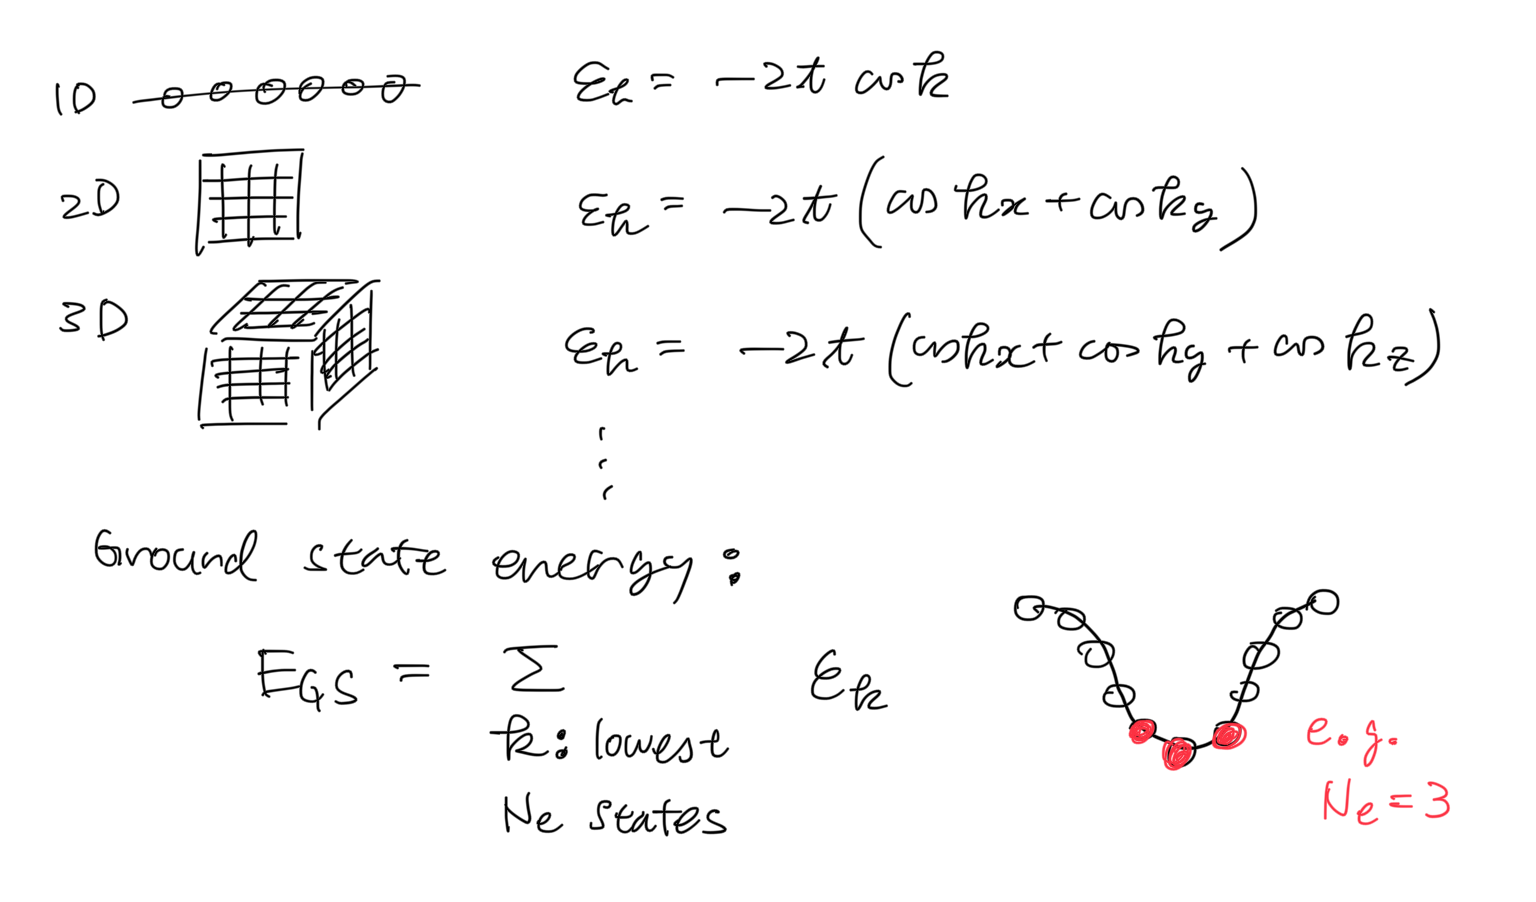 1D εk = -2t cos k
2D εk = -2t (cos kx + cos ky)
3D εk = -2t (cos kx + cos ky + cos kz)
⋮
Ground state energy:
EGS = Σ εk
k: lowest
Ne states
e.g.
Ne = 3